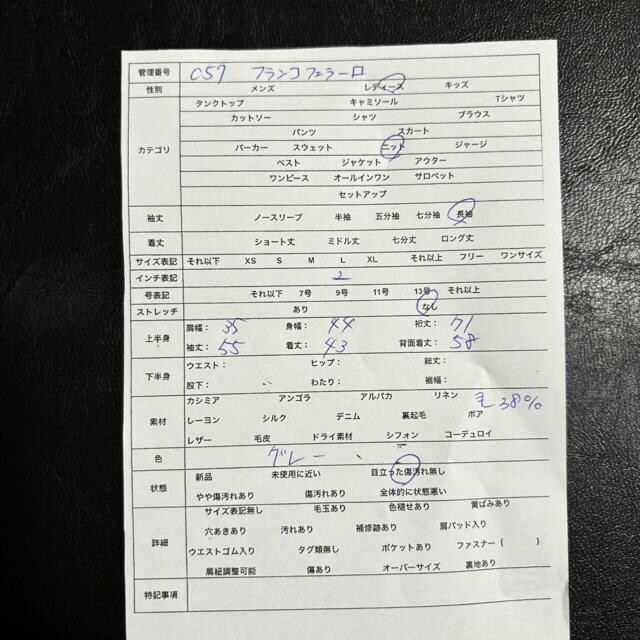 管理番号 C57 フランコフェラーロ
性別 メンズ レディース キッズ
タンクトップ キャミソール Tシャツ
カットソー シャツ ブラウス
パンツ スカート
カテゴリ パーカー スウェット ニット ジャージ
ベスト ジャケット アウター
ワンピース オールインワン サロペット
セットアップ
袖丈 ノースリーブ 半袖 五分袖 七分袖 長袖
着丈 ショート丈 ミドル丈 七分丈 ロング丈
サイズ表記 それ以下 XS S M L XL それ以上 フリー ワンサイズ
インチ表記 2
号表記 それ以下 7号 9号 11号 13号 それ以上
ストレッチ あり なし
上半身 肩幅: 35 身幅: 44 裄丈: 71
袖丈: 55 着丈: 43 背面着丈: 58
下半身 ウエスト: ヒップ: 総丈:
股下: わたり: 裾幅:
カシミア アンゴラ アルパカ リネン 毛38%
素材 レーヨン シルク デニム 裏起毛 ボア
レザー 毛皮 ドライ素材 シフォン コーデュロイ
色 グレー
状態 新品 未使用に近い 目立った傷汚れ無し
やや傷汚れあり 傷汚れあり 全体的に状態悪い
サイズ表記無し 毛玉あり 色褪せあり 黄ばみあり
詳細 穴あきあり 汚れあり 補修跡あり 肩パッド入り
ウエストゴム入り タグ類無し ポケットあり ファスナー( )
肩紐調整可能 傷あり オーバーサイズ 裏地あり
特記事項